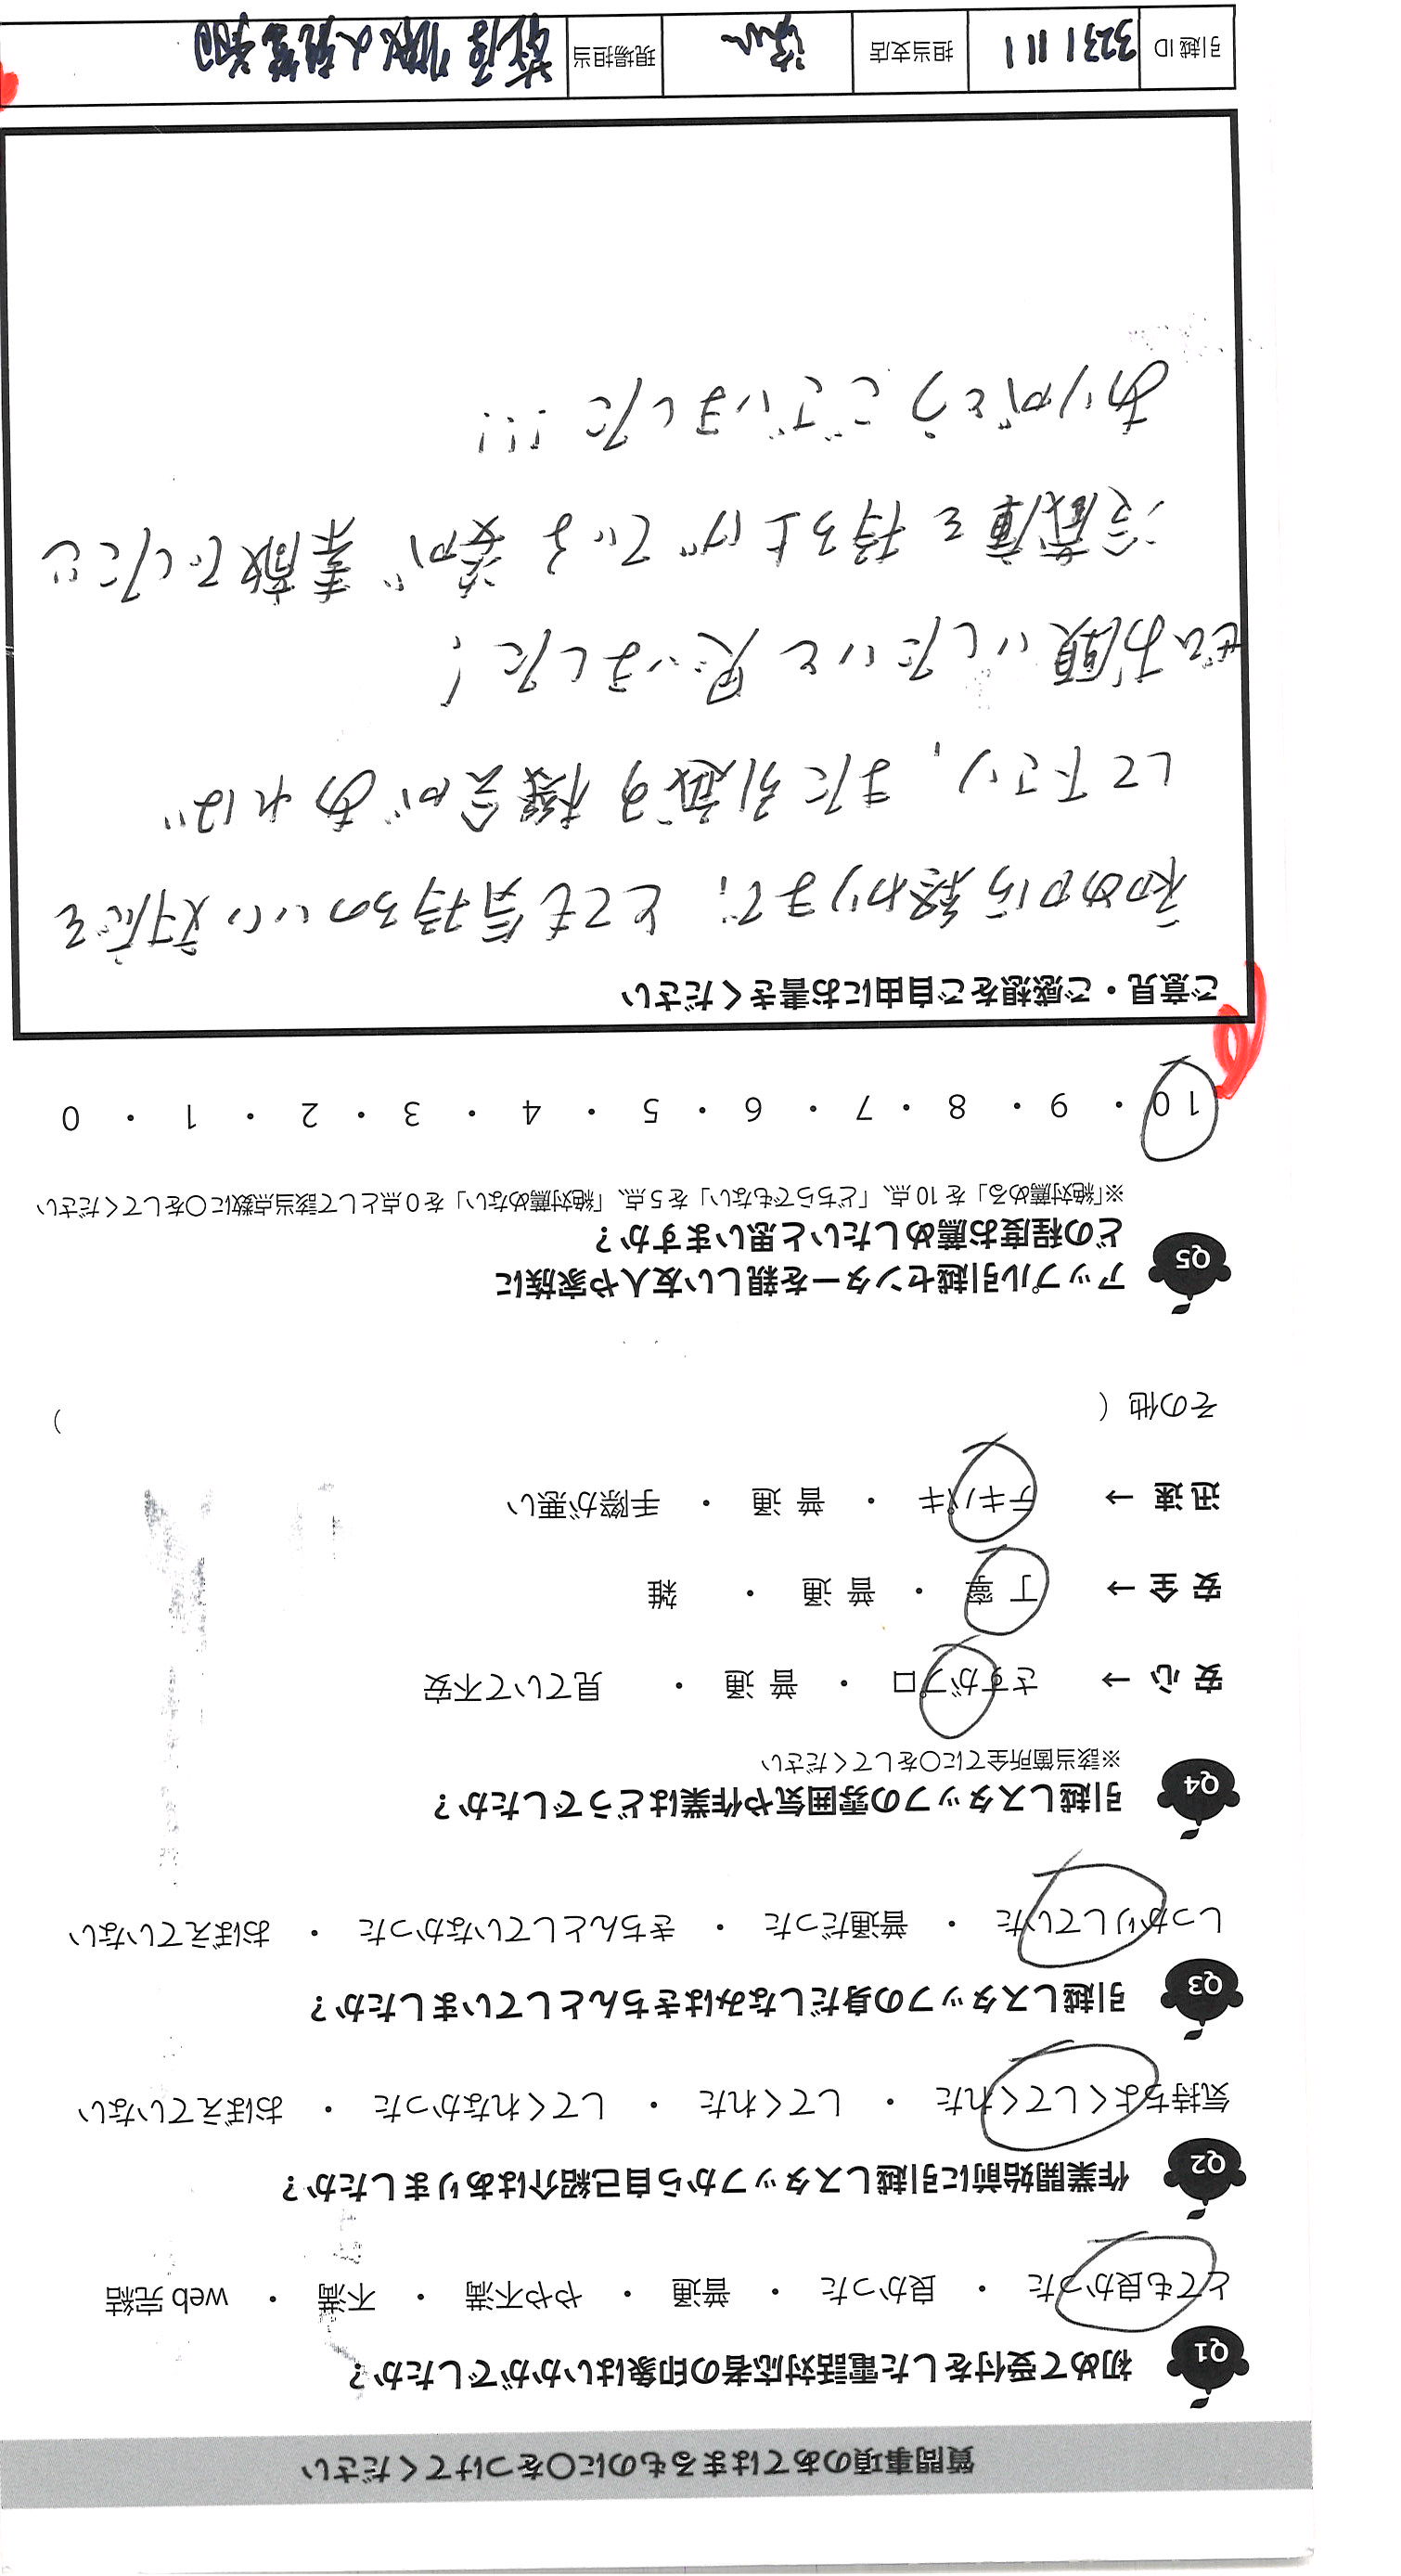 質問事項のあてはまるものに〇をつけてください
Q1 初めて受付をした電話対応者の印象はいかがでしたか？
とても良かった ・ 良かった ・ 普通 ・ やや不満 ・ 不満 ・ web 完結
Q2 作業開始前に引越しスタッフから自己紹介はありましたか？
気持ちよくしてくれた ・ してくれた ・ してくれなかった ・ おぼえていない
Q3 引越しスタッフの身だしなみはきちんとしていましたか？
しっかりしていた ・ 普通だった ・ きちんとしていなかった ・ おぼえていない
Q4 引越しスタッフの雰囲気や作業はどうでしたか？
※該当箇所全てに〇をしてください
安 心 → さすがプロ ・ 普 通 ・ 見ていて不安
安 全 → 丁 寧 ・ 普 通 ・ 雑
迅 速 → テキパキ ・ 普 通 ・ 手際が悪い
その他（ ）
Q5 アップル引越センターを親しい友人や家族に
どの程度お薦めしたいと思いますか？
※「絶対薦める」を 10 点、「どちらでもない」を 5 点、「絶対薦めない」を 0 点として該当点数に〇をしてください
10 ・ 9 ・ 8 ・ 7 ・ 6 ・ 5 ・ 4 ・ 3 ・ 2 ・ 1 ・ 0
ご意見・ご感想をご自由にお書きください
初めから終わりまで、とても気持ちのいい対応を
して下さり、また引越す機会があれば
ぜひお願いしたいと思いました！
冷蔵庫を持ち上げている姿が素敵でした
ありがとうございました!!!
引越 ID 3231111 担当支店 現場担当